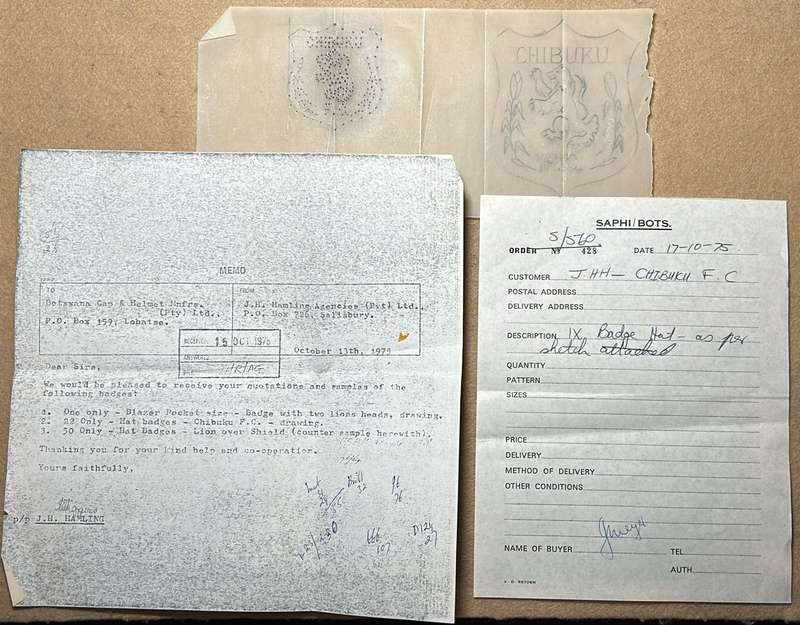 CHIBUKU
MEMO
TO
FROM
Botswana Cap & Helmet Mnfrs.
(Pty) Ltd.,
P.O. Box 159, Lobatse.
J.H. Hamling Agencies (Pvt) Ltd.,
P.O. Box 726, Salisbury.
RECEIVED 15 OCT 1975
ANSWERED
October 13th, 1975
Dear Sirs,
We would be pleased to receive your quotations and samples of the
following badges:
1. One only - Blazer Pocket size - Badge with two lions heads, drawing.
2. 22 Only - Hat badges - Chibuku F.C. - drawing.
3. 50 Only - Hat Badges - Lion over Shield (counter sample herewith).
Thanking you for your kind help and co-operation.
Yours faithfully,
p/p J.H. HAMLING
SAPHI/BOTS.
S/560
ORDER Nº 428
DATE 17-10-75
CUSTOMER JHH - CHIBUKU F.C
POSTAL ADDRESS
DELIVERY ADDRESS
DESCRIPTION 1X Badge Hat - as per
sketch attached
QUANTITY
PATTERN
SIZES
PRICE
DELIVERY
METHOD OF DELIVERY
OTHER CONDITIONS
NAME OF BUYER
TEL.
AUTH.